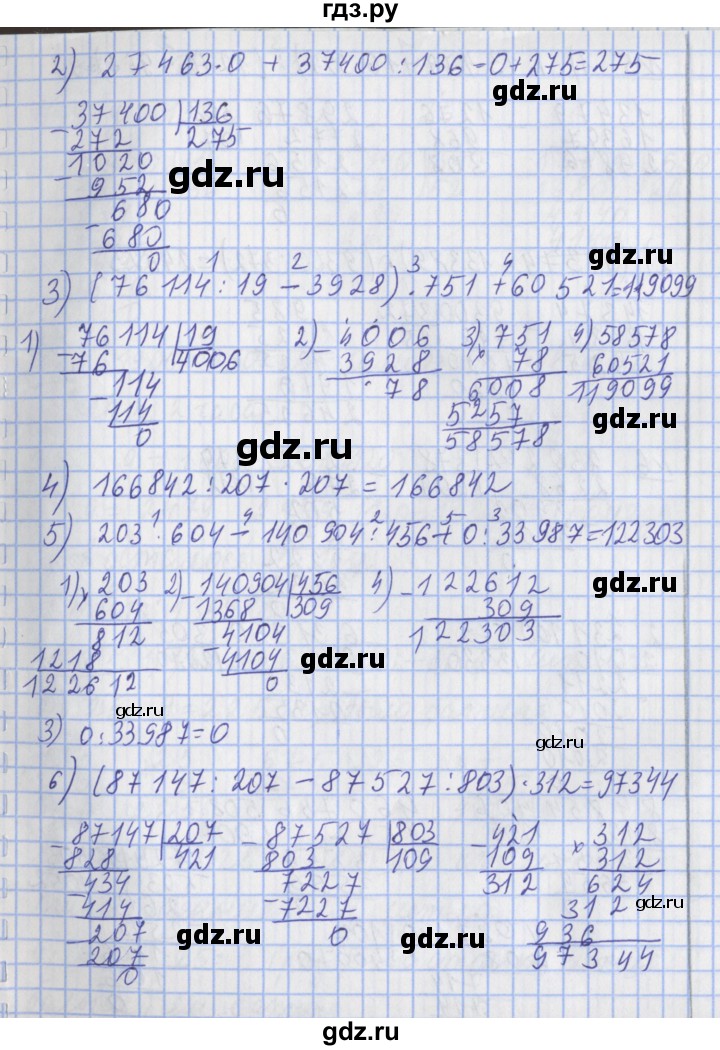 гдз.ру
2) 27463·0 + 37400:136=0+275=275
gdz.ru
37400 |136
- 272 275
1020
- 952
gdz.ru
680
- 680
0
gdz.ru
1 2 3 4
3) (76114:19-3928)·751+60521=119099
1) 76114 |19
- 76 4006
- 114
114
0
2) 4006
- 3928
78
3) 751
x 78
6008
5257
58578
4) 58578
60521
119099
gdz.ru
gdz.ru
4) 166842:207·207=166842
1 4 2 5 3
5) 203·604-140904:456+0:33987=122303
1) 203
x 604
812
1218
122612
2) 140904 |456
- 1368 309
4104
- 4104
0
4) - 122612
309
122303
gdz.ru
gdz.ru
gdz.ru
3) 0:33987=0
gdz.ru
6) (87147:207-87527:803)·312=97344
- 87147 |207
828 421
434
- 414
- 207
207
0
- 87527 |803
803 109
7227
- 7227
0
- 421
109
312
x 312
312
624
312
936
97344
gdz.ru
gdz.ru
gdz.ru
gdz.ru
gdz.ru